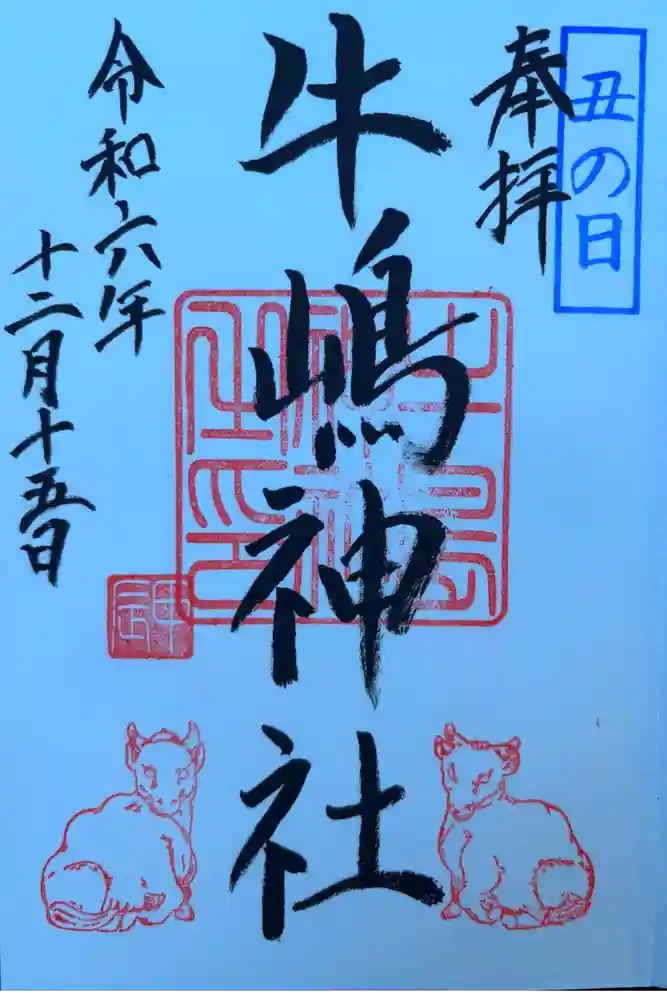 丑の日
奉拝
牛嶋神社
令和六年
十二月十五日